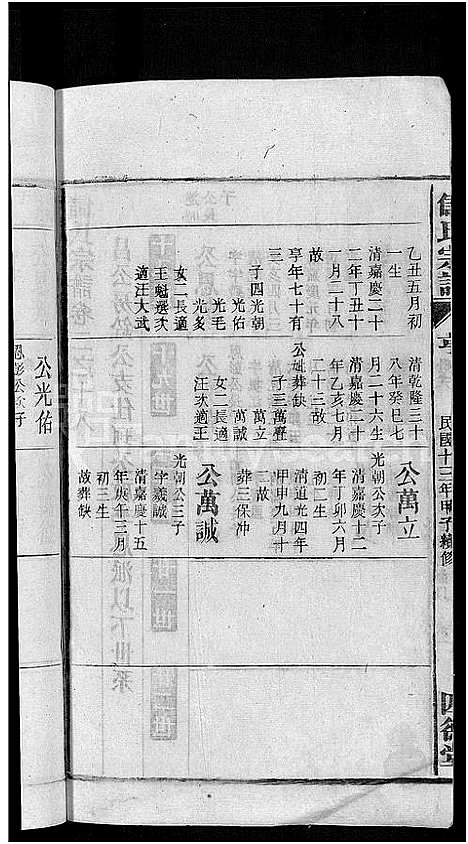 氏宗譜
民國十三年甲子續修
乙丑五月初
一生
清嘉慶二十
二年丁丑十
一月二十八
故
享年七十有
三
子四光朝
光佑
光毛
光
女二長適
王魁選次
適汪大武
清乾隆三十
八年癸巳七
月二十六生
清嘉慶二十
年乙亥七月
二十三故
公妣葬缺
子三萬疊
萬立
萬誠
女二長適
汪次適王
公萬立
光朝公次子
清嘉慶十二
年丁卯六月
初二生
清道光四年
甲申九月十
二故
葬三保沖
公萬誠
光朝公三子
字義誠
清嘉慶十五
年庚午三月
初三生
故葬缺
公光佑
公次子